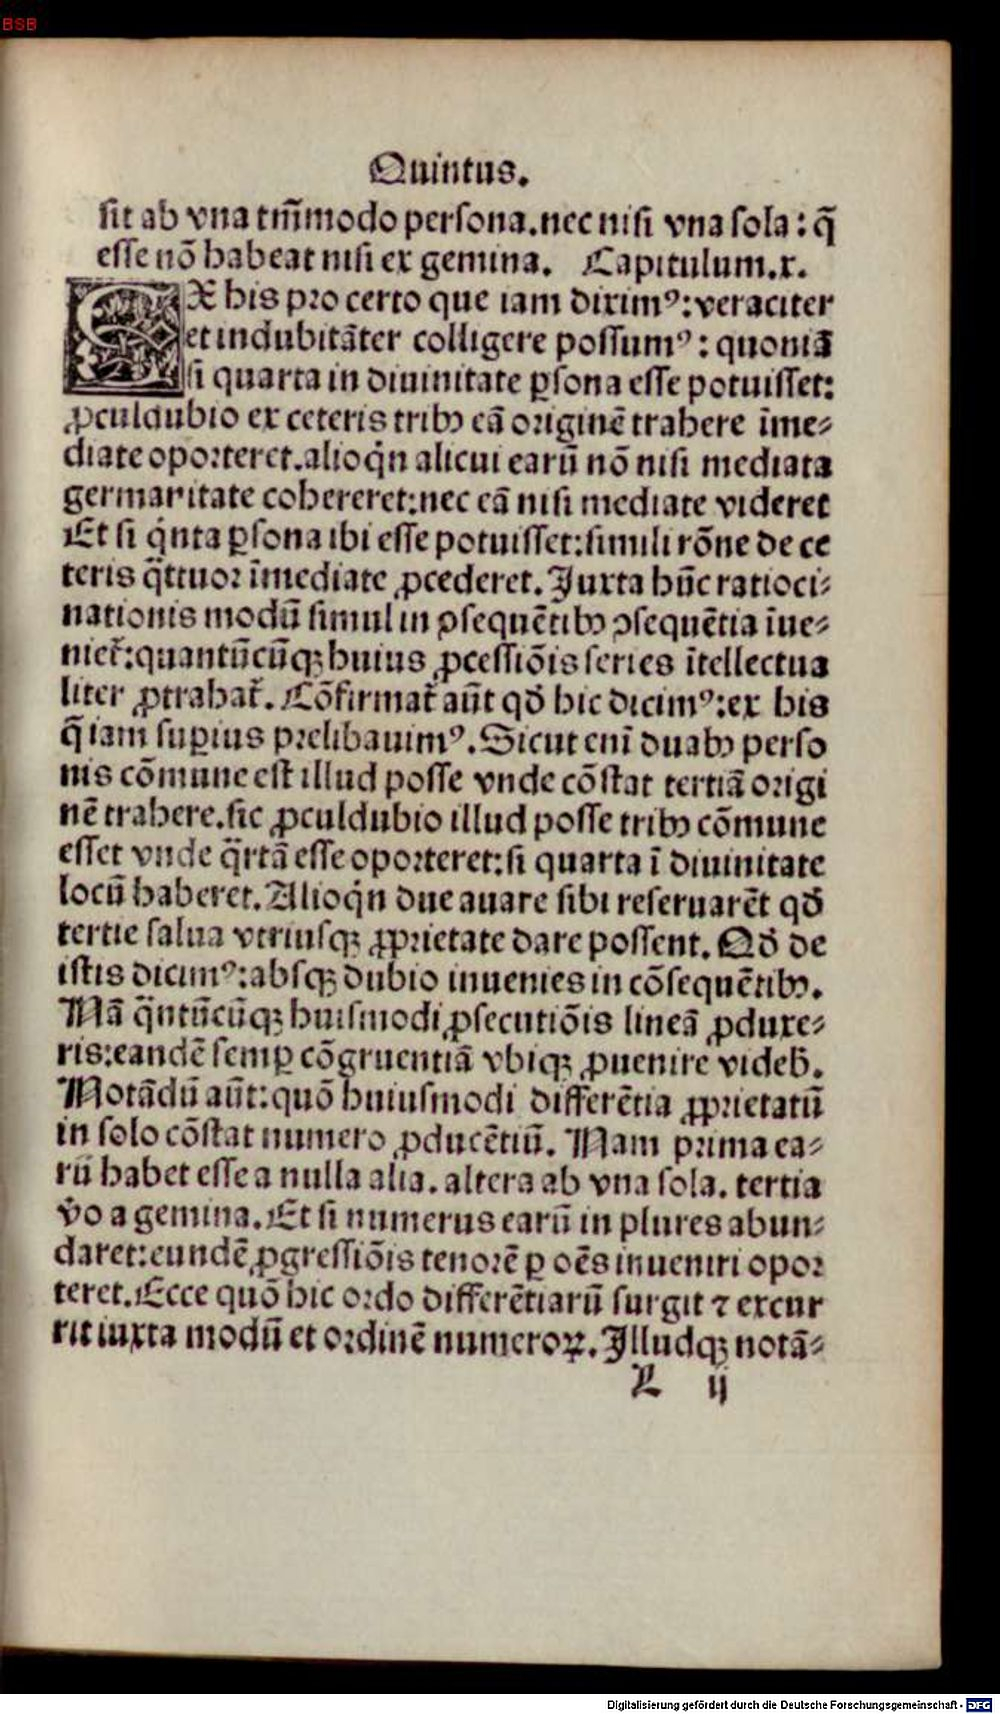 BSB
Quintus.
sit ab vna tm̄modo persona.nec nisi vna sola: q̄
esse nō habeat nisi ex gemina. Capitulum.x.
EX his pro certo que iam diximꝰ:veraciter
et indubitāter colligere possumꝰ: quoniā
si quarta in diuinitate ꝑsona esse potuisset:
ꝓculdubio ex ceteris tribꝫ eā originē trahere īme⸗
diate oporteret.alioqͥn alicui earū nō nisi mediata
germanitate cohereret:nec eā nisi mediate videret
Et si qͥnta ꝑsona ibi esse potuisset:simili rōne de ce
teris qᷓttuor īmediate ꝓcederet. Juxta hūc ratioci⸗
nationis modū simul in ꝯsequētibꝫ ꝯsequētia īue⸗
niet̄:quantūcūqꝫ huius ꝓcessiōis series ītellectua
liter ꝓtrahat̄. Cōfirmat̄ aūt qđ hic dicimꝰ:ex his
q̄ iam suꝑius prelibauimꝰ. Sicut enī duabꝫ perso
nis cōmune est illud posse vnde cōstat tertiā origi
nē trahere.sic ꝓculdubio illud posse tribꝫ cōmune
esset vnde qᷓrtā esse oporteret:si quarta ī diuinitate
locū haberet. Alioqͥn due auare sibi reseruarēt qđ
tertie salua vtriusqꝫ ꝓprietate dare possent. Qđ de
istis dicimꝰ:absqꝫ dubio inuenies in cōsequētibꝫ.
Nā qᷓntūcūqꝫ huismodi ꝓsecutiōis lineā ꝓduxe⸗
ris:eandē semꝑ cōgruentiā vbiqꝫ ꝓuenire videb̄.
Notādū aūt:quō huiusmodi differētia ꝓprietatū
in solo cōstat numero ꝓducētiū. Nam prima ea⸗
rū habet esse a nulla alia. altera ab vna sola. tertia
v̄o a gemina. Et si numerus earū in plures abun⸗
daret:eundē ꝓgressiōis tenorē ꝑ oēs inueniri opor
teret. Ecce quō hic ordo differētiarū surgit ⁊ excur
rit iuxta modū et ordinē numeroꝝ. Illudqꝫ notā⸗
L ij
Digitalisierung gefördert durch die Deutsche Forschungsgemeinschaft - DFG